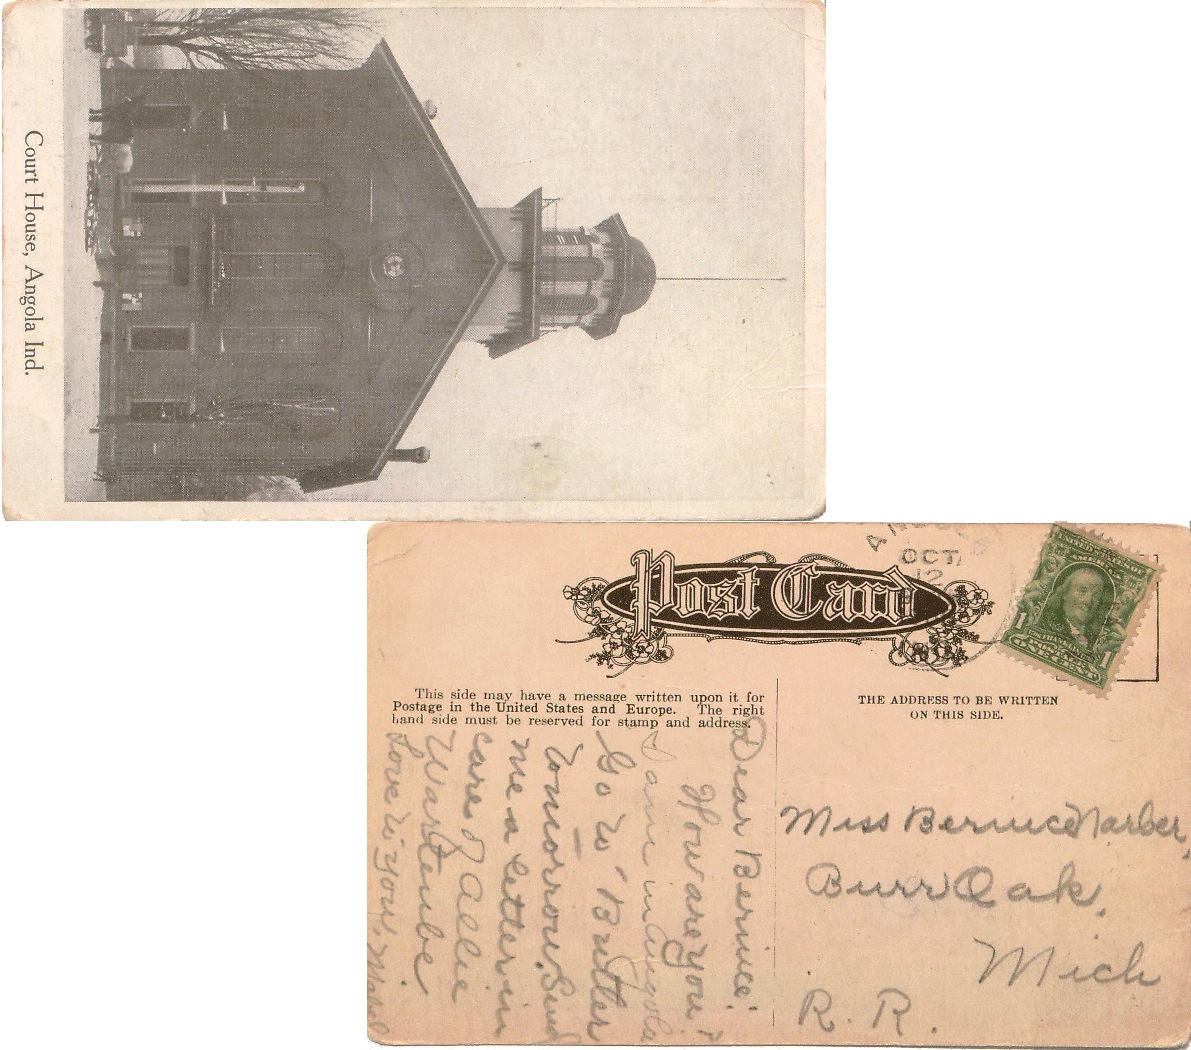 Court House, Angola Ind.
Post Card
OCT
12
1
1
ONE CENT
This side may have a message written upon it for
Postage in the United States and Europe. The right
hand side must be reserved for stamp and address.
THE ADDRESS TO BE WRITTEN
ON THIS SIDE.
Dear Bernice:
How are you?
I am in Angola
Go to Butler
tomorrow. Send
me a letter in
care of Allie
Love to you, Mabel
Miss Bernice
Burr Oak,
Mich
R. R.